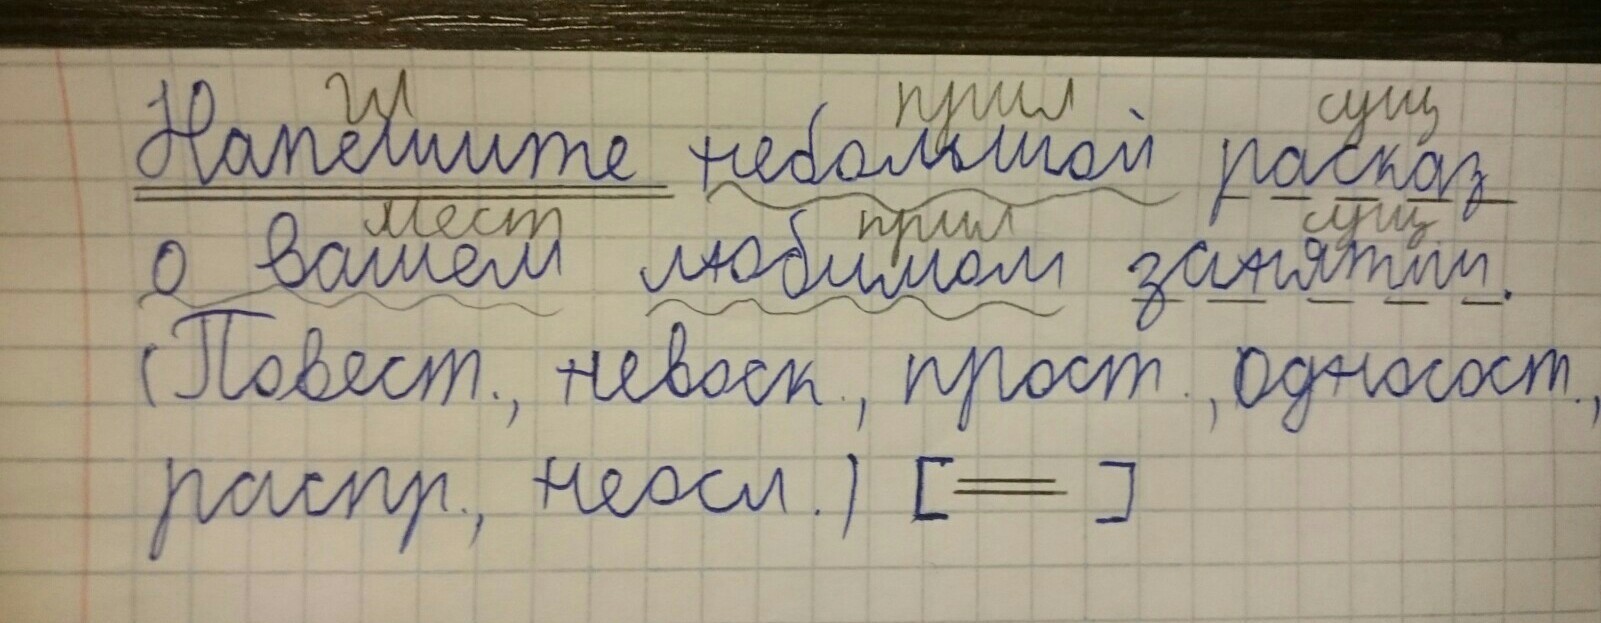 гл прил сущ
Напешите небольшой расказ
мест прил сущ
о вашем любимом занятии.
(Повест., невоск., прост., односост.,
распр., неосл.) [ ═ ]